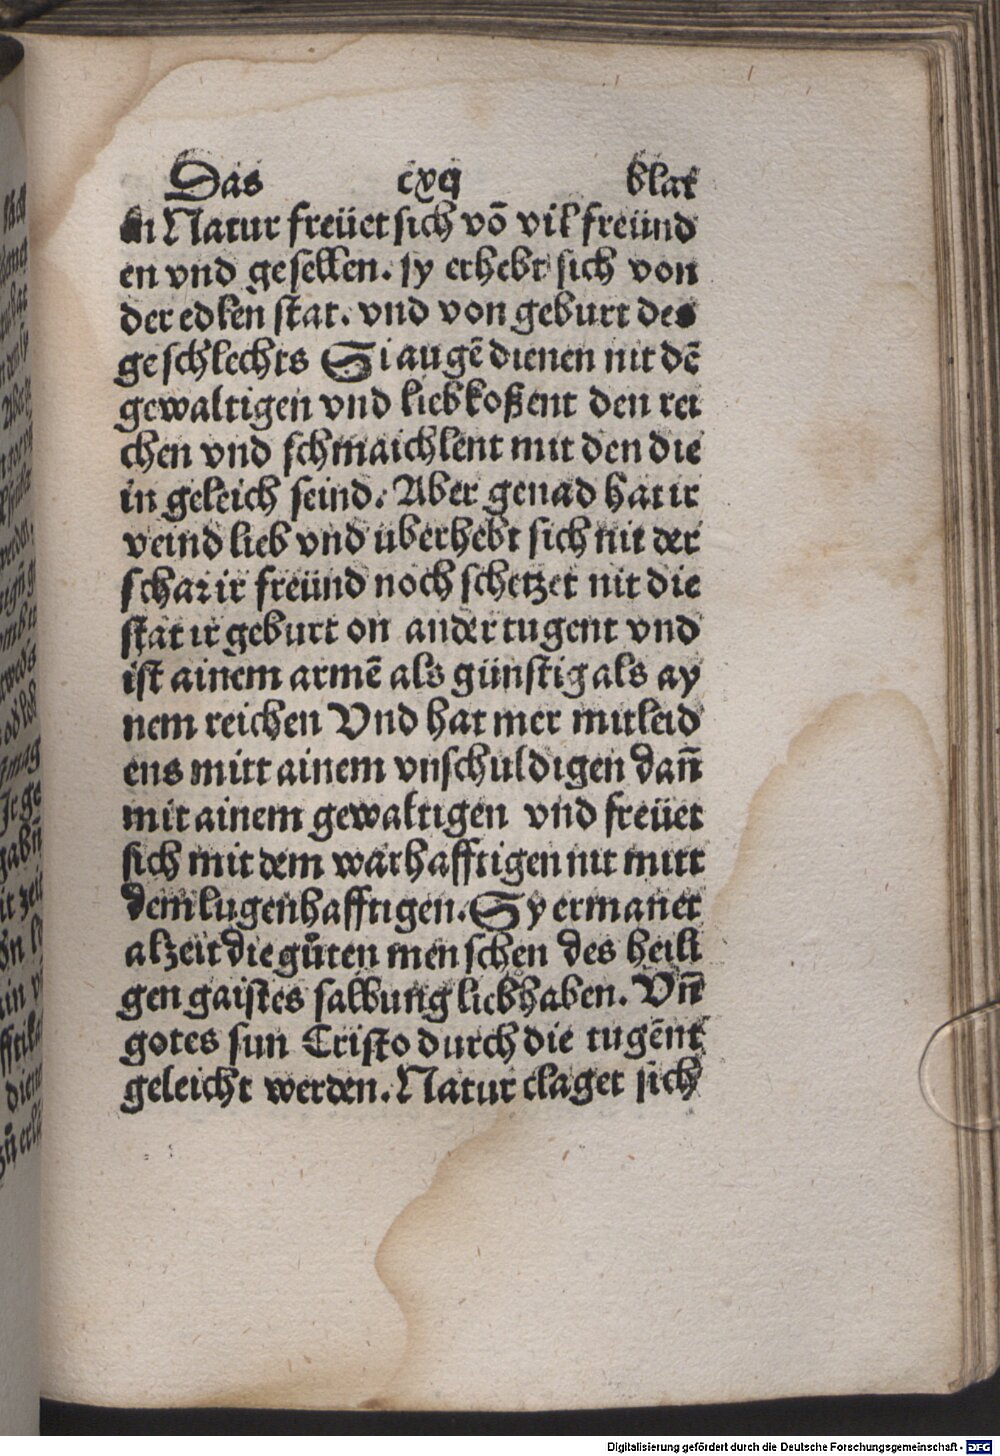 Das cxij blat
in Natur freüet sich võ vil freünd
en vnd gesellen. sy erhebt sich von
der edlen stat. vnd von geburt des
geschlechts Si augẽ dienen mit dẽ
gewaltigen vnd liebkoßent den rei
chen vnd schmaichlent mit den die
in geleich seind. Aber genad hat ir
veind lieb vnd uberhebt sich nit der
schar ir freünd noch schetzet nit die
stat ir geburt on ander tugent vnd
ist ainem armẽ als günstig als ay
nem reichen Vnd hat mer mitleid
ens mitt ainem vnschuldigen dañ
mit ainem gewaltigen vnd freüet
sich mit dem warhafftigen nit mitt
dem lugenhafftigen. Sy ermanet
alzeit die gůten menschen des heili
gen gaistes salbung liebhaben. Vñ
gotes sun Cristo durch die tugẽnt
geleicht werden. Natur claget sich
Digitalisierung gefördert durch die Deutsche Forschungsgemeinschaft - DFG